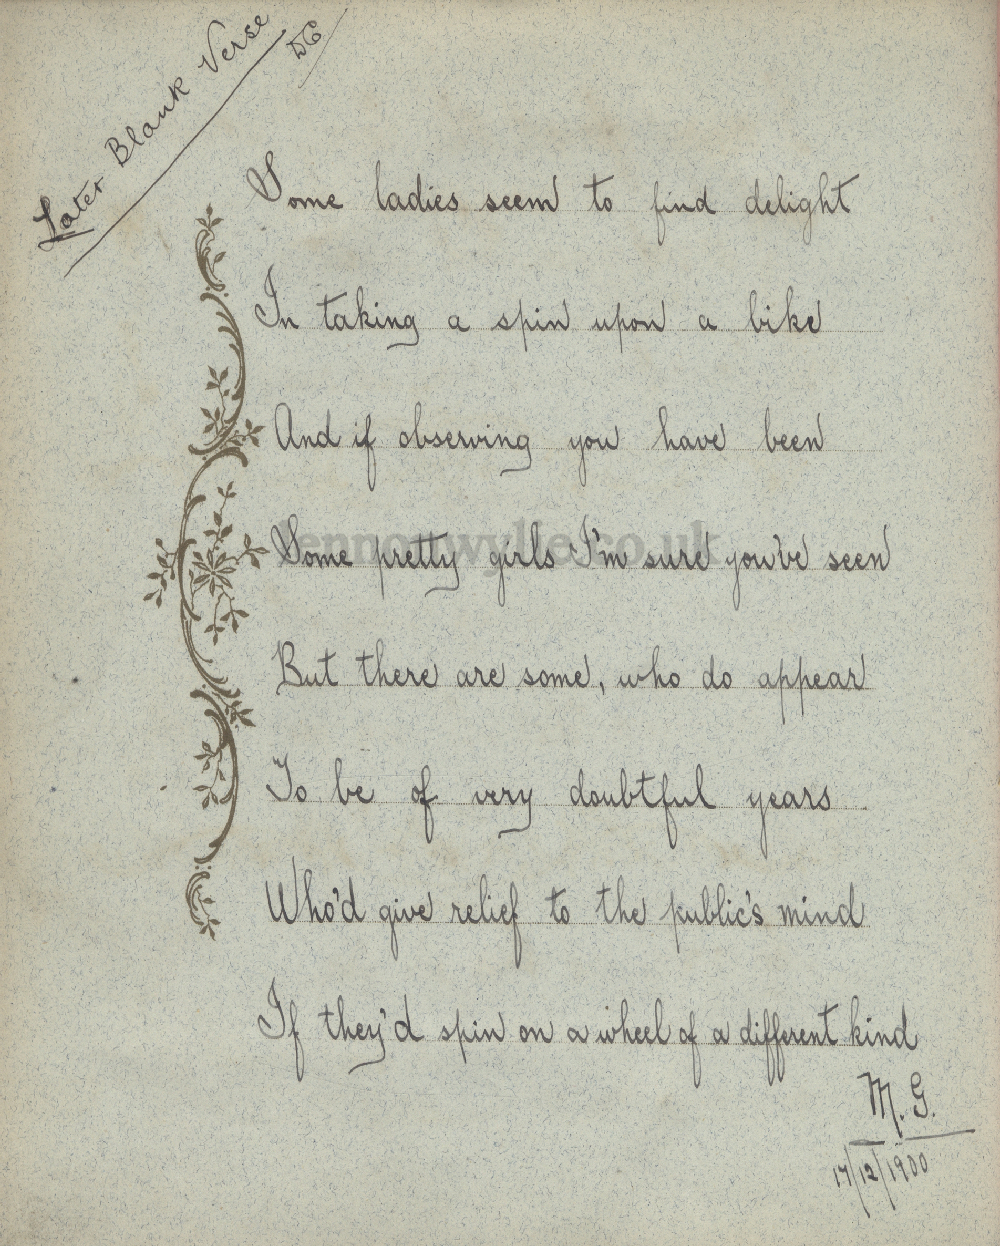 Later Blank Verse
DC
Some ladies seem to find delight
In taking a spin upon a bike
And if observing you have been
Some pretty girls I'm sure you've seen
lennonwylie.co.uk
But there are some, who do appear
To be of very doubtful years
Who'd give relief to the public's mind
If they'd spin on a wheel of a different kind
M. G.
17/12/1900